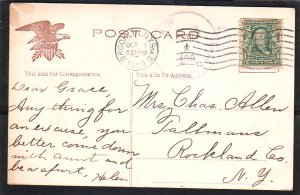 POST CARD
BROOKLINE MASS.
OCT 1
1908
This side for Correspondence.
This side for Address.
Dear Grace,
Any thing for
an excuse, you
better come down
with aunt and
be a sport. Helen
Mrs. Chas. Allen
Tallmans
Rockland Co.
N.Y.